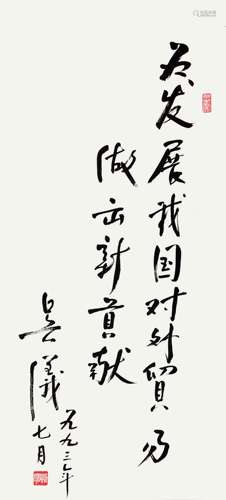 为发展我国对外貿易
做出新貢献
吴儀
一九九三年
七月